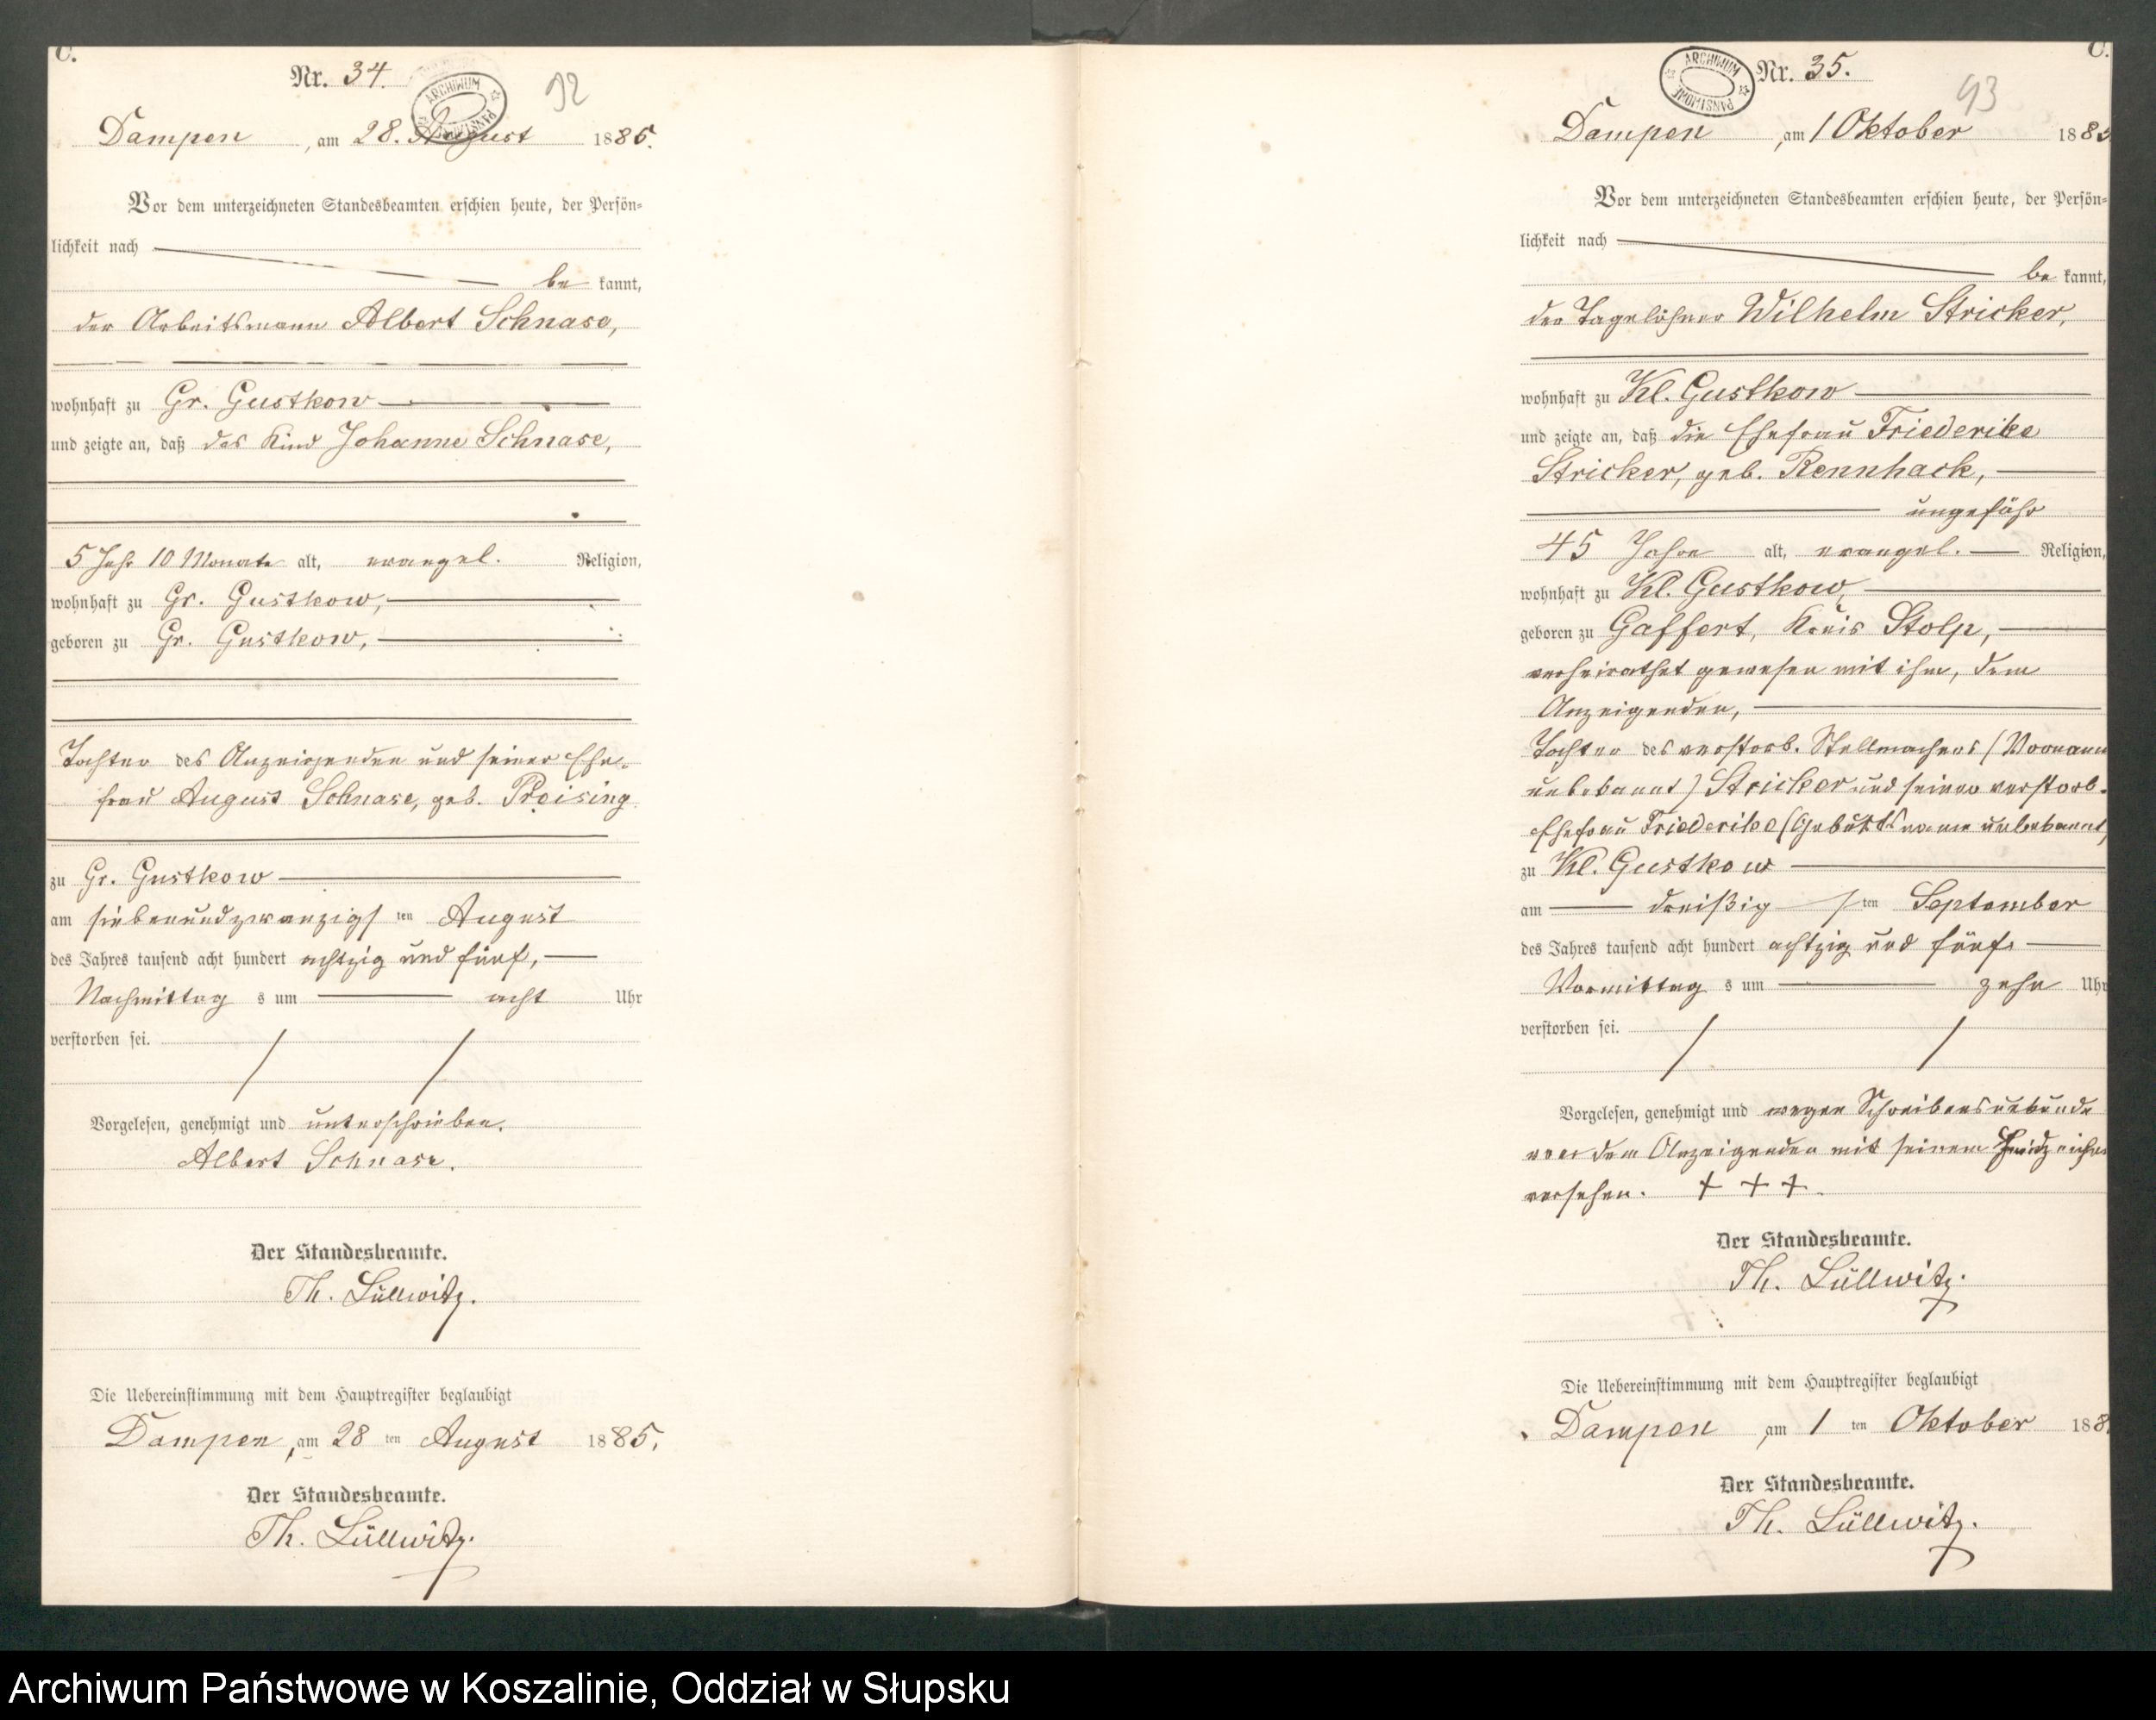 C.
Nr. 34.
ARCHIWUM PAŃSTWOWE
92
Dampen, am 28. August 1885.
Vor dem unterzeichneten Standesbeamten erschien heute, der Persön-
lichkeit nach
be kannt,
der Arbeitsmann Albert Schnase,
wohnhaft zu Gr. Gustkow
und zeigte an, daß das Kind Johanne Schnase,
5 Jahr 10 Monate alt, evangel. Religion,
wohnhaft zu Gr. Gustkow,
geboren zu Gr. Gustkow,
Tochter des Anzeigenden und seiner Ehe-
frau August Schnase, geb. Preising
zu Gr. Gustkow
am siebenundzwanzigsten August
des Jahres tausend acht hundert achtzig und fünf,
Nachmittags um acht Uhr
verstorben sei.
Vorgelesen, genehmigt und unterschrieben.
Albert Schnase.
Der Standesbeamte.
Th. Lüllwitz.
Die Uebereinstimmung mit dem Hauptregister beglaubigt
Dampen, am 28 ten August 1885.
Der Standesbeamte.
Th. Lüllwitz.
C.
Nr. 35.
ARCHIWUM PAŃSTWOWE
93
Dampen, am 1 Oktober 1885
Vor dem unterzeichneten Standesbeamten erschien heute, der Persön-
lichkeit nach
be kannt,
der Tagelöhner Wilhelm Stricker,
wohnhaft zu Kl. Gustkow
und zeigte an, daß die Ehefrau Friederike
Stricker, geb. Rennhack,
ungefähr
45 Jahre alt, evangel. Religion,
wohnhaft zu Kl. Gustkow,
geboren zu Gaffert, Kreis Stolp,
verheirathet gewesen mit ihm, dem
Anzeigenden,
Tochter des verstorb. Stellmachers (Vorname
unbekannt) Stricker und seiner verstorb.
Ehefrau Friederike (Geburtsname unbekannt)
zu Kl. Gustkow
am dreißigsten September
des Jahres tausend acht hundert achtzig und fünf
Vormittags um zehn Uhr
verstorben sei.
Vorgelesen, genehmigt und wegen Schreibensunkunde
von dem Anzeigenden mit seinem Handzeichen
versehen. + + +
Der Standesbeamte.
Th. Lüllwitz.
Die Uebereinstimmung mit dem Hauptregister beglaubigt
Dampen, am 1 ten Oktober 188
Der Standesbeamte.
Th. Lüllwitz.
Archiwum Państwowe w Koszalinie, Oddział w Słupsku